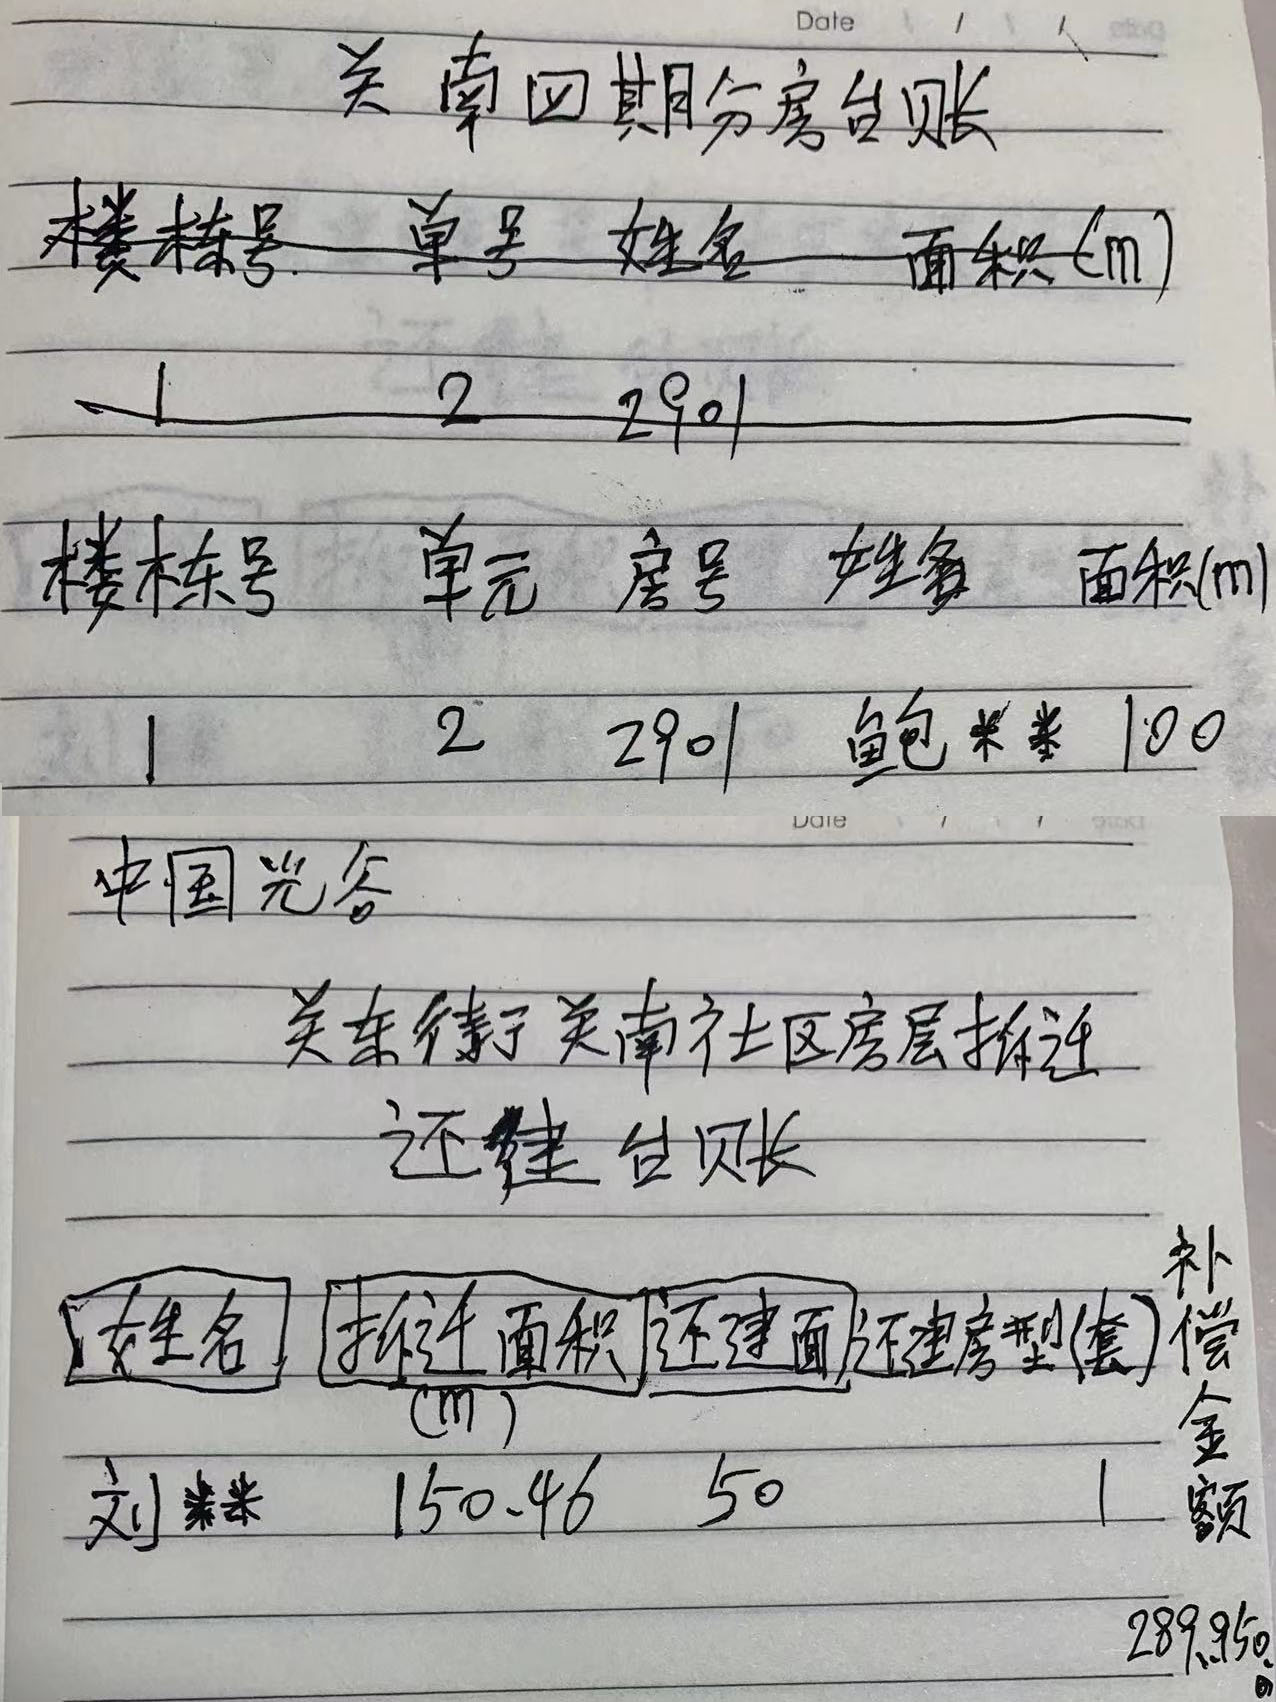 Date / / /
关南四期分房台账
楼栋号 单号 姓名 面积(m)
1 2 2901
楼栋号 单元 房号 姓名 面积(m)
1 2 2901 鲍** 100
Date / / /
中国光谷
关东街关南社区房屋拆迁
还建台账
姓名 拆迁面积(m) 还建面 还建房型(套) 补偿金额
刘** 150.46 50 1
289,950.